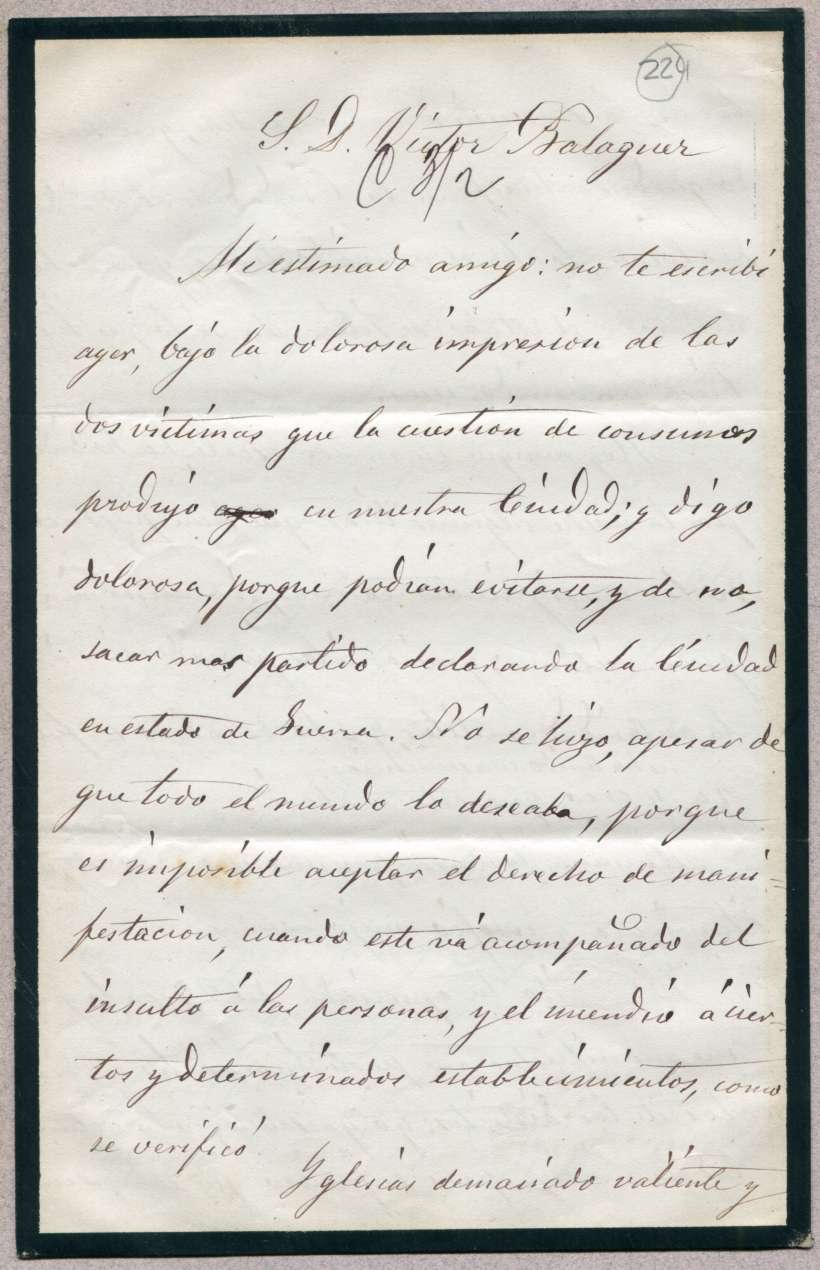 224
S. D. Victor Balaguer
C 3/2
Mi estimado amigo: no te escribí
ayer, bajo la dolorosa impresion de las
dos victimas que la cuestion de consumos
produjo ayer en nuestra Ciudad; y digo
dolorosa, porque podian evitarse, y de no,
sacar mas partido declarando la Ciudad
en estado de Guerra. No se hizo, apesar de
que todo el mundo lo deseaba, porque
es imposible aceptar el derecho de mani=
festacion, cuando este vá acompañado del
insulto á las personas, y el incendio á cier-
tos y determinados establecimientos, como
se verificó.
Yglesias demasiado valiente y